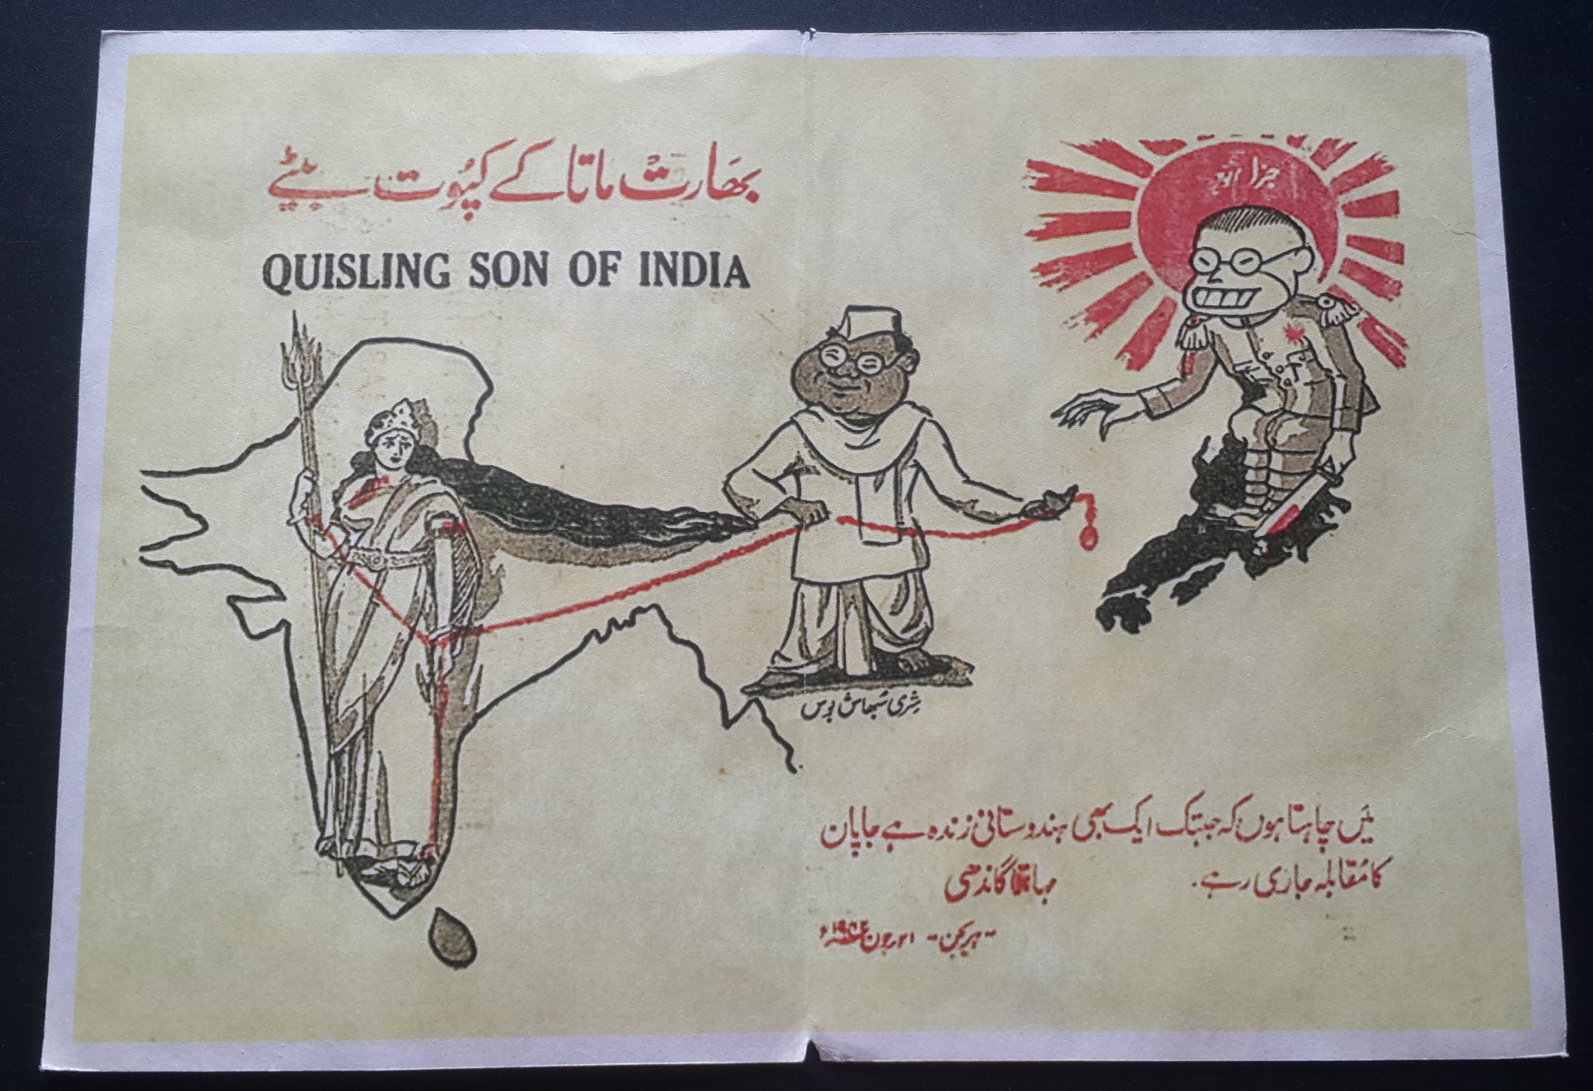 بھَارتْ ماتا کے کپُوت بیٹے
QUISLING SON OF INDIA
شِری سُبھاش بوس
میَں چاہتا ہوں کہ جبتک ایک بھی ہندوستانی زندہ ہے جاپان
کا مُقابلہ جاری رہے۔
مہاتما گاندھی
"ہریجن" ۲۱ جون ۱۹۴۲ء